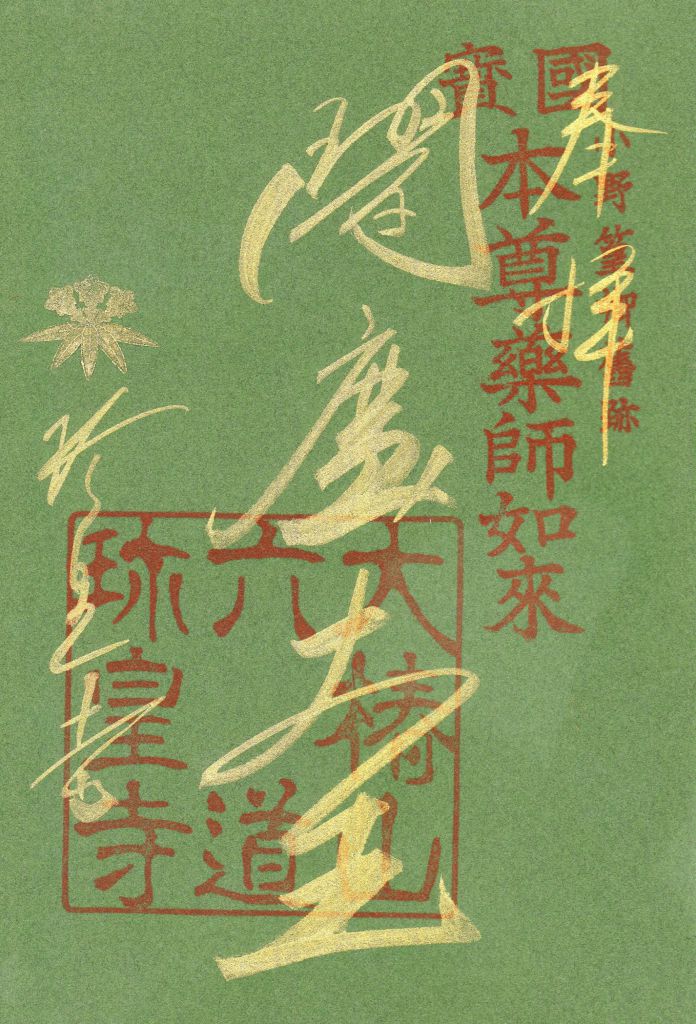 奉拝
小野篁卿舊跡
國寶
本尊藥師如來
閻魔大王
大椿山
六道
珎皇寺
珍皇寺